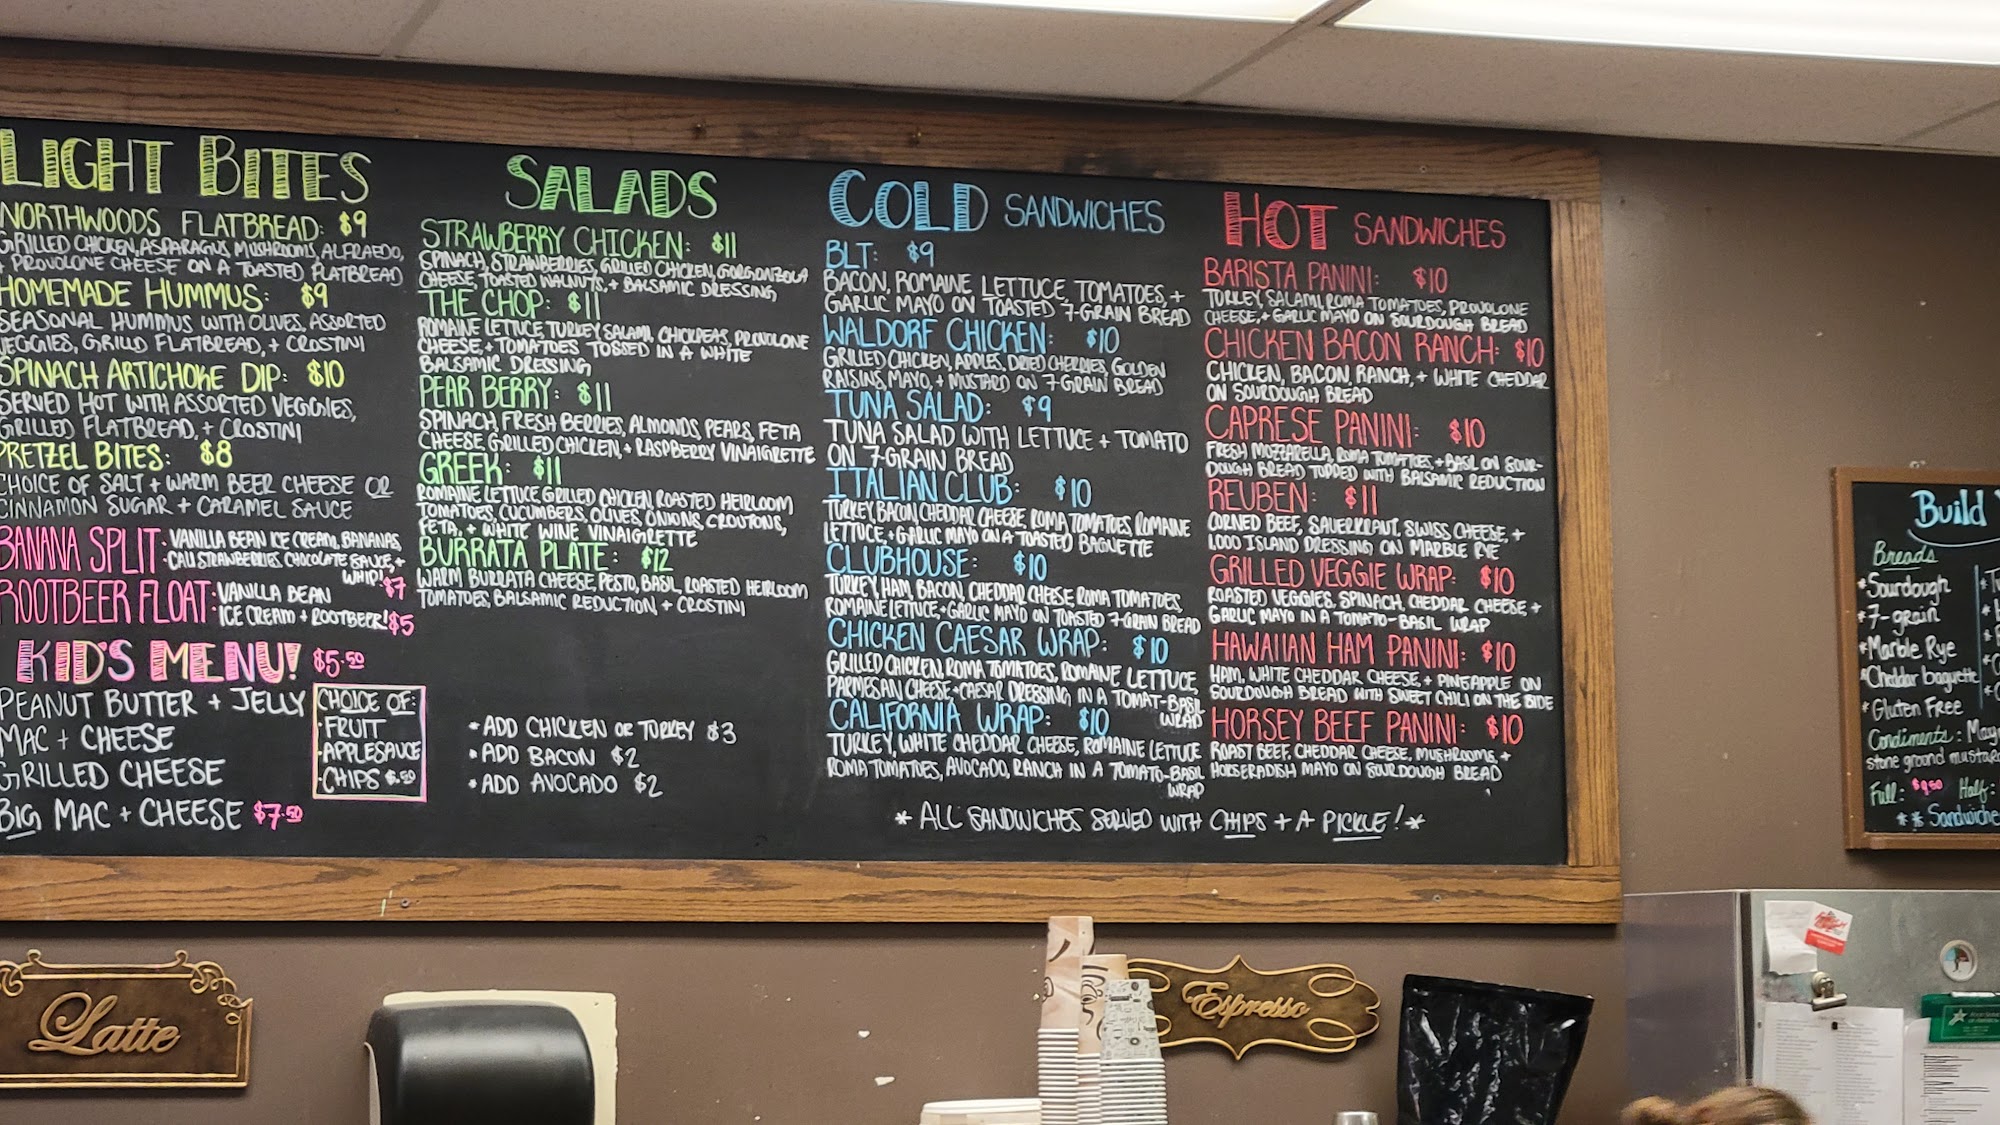 LIGHT BITES
NORTHWOODS FLATBREAD: $9
GRILLED CHICKEN, ASPARAGUS, MUSHROOMS, ALFRAEDO,
+ PROVOLONE CHEESE ON A TOASTED FLATBREAD
HOMEMADE HUMMUS: $9
SEASONAL HUMMUS WITH OLIVES, ASSORTED
VEGGIES, GRILLD FLATBREAD, + CROSTINI
SPINACH ARTICHOKE DIP: $10
SERVED HOT WITH ASSORTED VEGGIES,
GRILLED FLATBREAD, + CROSTINI
PRETZEL BITES: $8
CHOICE OF SALT + WARM BEER CHEESE OR
CINNAMON SUGAR + CARAMEL SAUCE
BANANA SPLIT: VANILLA BEAN ICE CREAM, BANANAS,
CALI STRAWBERRIES, CHOCOLATE SAUCE, +
WHIP! $7
ROOTBEER FLOAT: VANILLA BEAN
ICE CREAM + ROOTBEER! $5
KID'S MENU! $5.50
PEANUT BUTTER + JELLY
MAC + CHEESE
GRILLED CHEESE
BIG MAC + CHEESE $7.50
CHOICE OF:
·FRUIT
·APPLESAUCE
·CHIPS $.50
SALADS
STRAWBERRY CHICKEN: $11
SPINACH, STRAWBERRIES, GRILLED CHICKEN, GORGONZOLA
CHEESE, TOASTED WALNUTS, + BALSAMIC DRESSING
THE CHOP: $11
ROMAINE LETTUCE, TURKEY, SALAMI, CHICKPEAS, PROVOLONE
CHEESE, + TOMATOES TOSSED IN A WHITE
BALSAMIC DRESSING
PEAR BERRY: $11
SPINACH, FRESH BERRIES, ALMONDS, PEARS, FETA
CHEESE, GRILLED CHICKEN, + RASPBERRY VINAIGRETTE
GREEK: $11
ROMAINE LETTUCE, GRILLED CHICKEN, ROASTED HEIRLOOM
TOMATOES, CUCUMBERS, OLIVES, ONIONS, CROUTONS,
FETA, + WHITE WINE VINAIGRETTE
BURRATA PLATE: $12
WARM BURRATA CHEESE, PESTO, BASIL, ROASTED HEIRLOOM
TOMATOES, BALSAMIC REDUCTION, + CROSTINI
* ADD CHICKEN OR TURKEY $3
* ADD BACON $2
* ADD AVOCADO $2
COLD SANDWICHES
BLT: $9
BACON, ROMAINE LETTUCE, TOMATOES, +
GARLIC MAYO ON TOASTED 7-GRAIN BREAD
WALDORF CHICKEN: $10
GRILLED CHICKEN, APPLES, DRIED CHERRIES, GOLDEN
RAISINS, MAYO, + MUSTARD ON 7-GRAIN BREAD
TUNA SALAD: $9
TUNA SALAD WITH LETTUCE + TOMATO
ON 7-GRAIN BREAD
ITALIAN CLUB: $10
TURKEY, BACON, CHEDDAR CHEESE, ROMA TOMATOES, ROMAINE
LETTUCE, + GARLIC MAYO ON A TOASTED BAGUETTE
CLUBHOUSE: $10
TURKEY, HAM, BACON, CHEDDAR CHEESE, ROMA TOMATOES,
ROMAINE LETTUCE + GARLIC MAYO ON TOASTED 7-GRAIN BREAD
CHICKEN CAESAR WRAP: $10
GRILLED CHICKEN, ROMA TOMATOES, ROMAINE LETTUCE,
PARMESAN CHEESE + CAESAR DRESSING IN A TOMAT-BASIL
WRAP
CALIFORNIA WRAP: $10
TURKEY, WHITE CHEDDAR CHEESE, ROMAINE LETTUCE
ROMA TOMATOES, AVOCADO, RANCH IN A TOMATO-BASIL
WRAP
HOT SANDWICHES
BARISTA PANINI: $10
TURKEY, SALAMI, ROMA TOMATOES, PROVOLONE
CHEESE, + GARLIC MAYO ON SOURDOUGH BREAD
CHICKEN BACON RANCH: $10
CHICKEN, BACON, RANCH, + WHITE CHEDDAR
ON SOURDOUGH BREAD
CAPRESE PANINI: $10
FRESH MOZZARELLA, ROMA TOMATOES, + BASIL ON SOUR-
DOUGH BREAD TOPPED WITH BALSAMIC REDUCTION
REUBEN: $11
CORNED BEEF, SAUERKRAUT, SWISS CHEESE, +
1000 ISLAND DRESSING ON MARBLE RYE
GRILLED VEGGIE WRAP: $10
ROASTED VEGGIES, SPINACH, CHEDDAR CHEESE, +
GARLIC MAYO IN A TOMATO-BASIL WRAP
HAWAIIAN HAM PANINI: $10
HAM, WHITE CHEDDAR CHEESE, + PINEAPPLE ON
SOURDOUGH BREAD WITH SWEET CHILI ON THE SIDE
HORSEY BEEF PANINI: $10
ROAST BEEF, CHEDDAR CHEESE, MUSHROOMS, +
HORSERADISH MAYO ON SOURDOUGH BREAD
* ALL SANDWICHES SERVED WITH CHIPS + A PICKLE! *
Build
Breads
* Sourdough
* 7-grain
* Marble Rye
* Cheddar baguette
* Gluten Free
Condiments: Mayo
stone ground mustard
Full: $9.50 Half:
** Sandwiche
Latte
Espresso